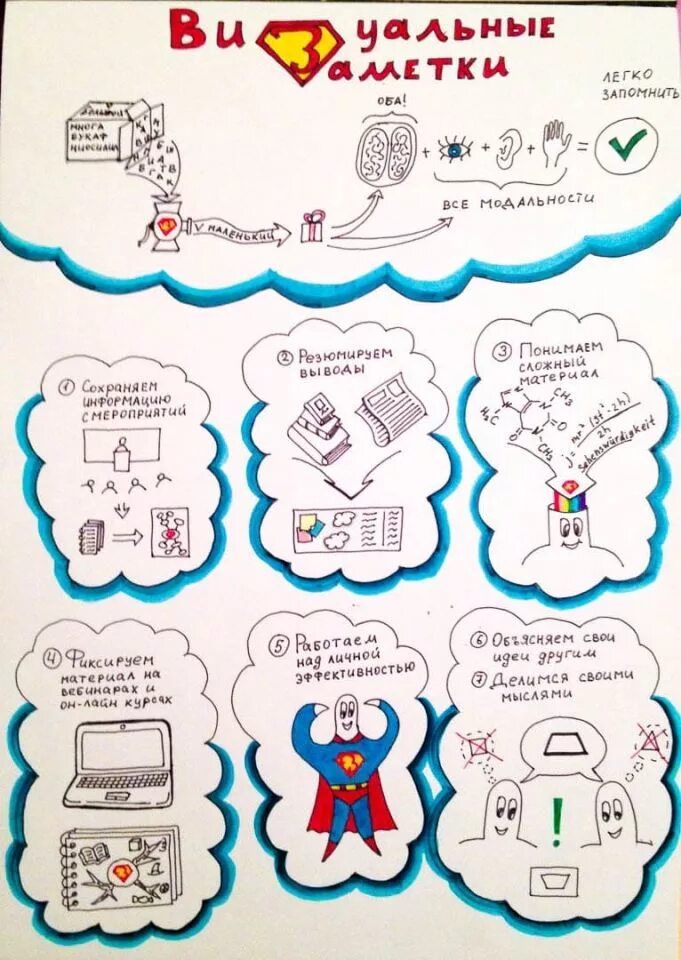 ВиЗуальные
Заметки
ЛЕГКО
ЗАПОМНИТЬ
ОБА!
БОЛЬШОЙ
МНОГА
БУКАФ
НИОСИЛИЛ
+ + + =
ВСЕ МОДАЛЬНОСТИ
МАЛЕНЬКИЙ
① Сохраняем
информацию
с мероприятий
② Резюмируем
выводы
③ Понимаем
сложный
материал
CH₃
H₃C
N
O
N
CH₃
j = mr² (gt² - 2h) / 2h
Sehenswürdigkeit
④ Фиксируем
материал на
вебинарах и
он-лайн курсах
⑤ Работаем
над личной
эффективностью
⑥ Объясняем свои
идеи другим
⑦ Делимся своими
мыслями
!